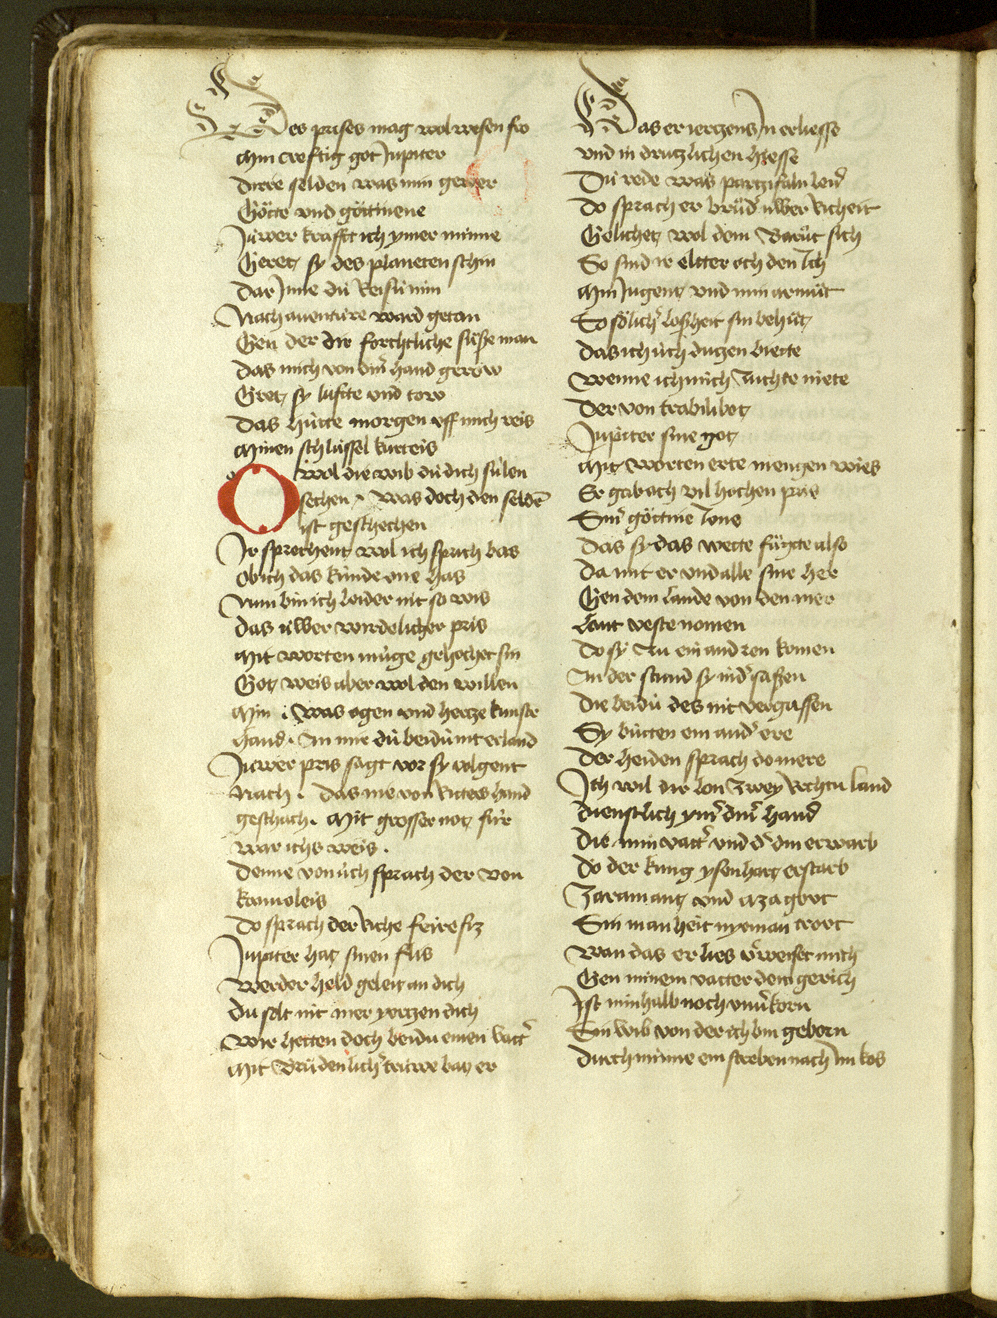 Des prises mag wol wesen fro
Min creftig got Jupiter
Dirre selden was min gewer
Götte vnd göttinne
Juwer krafft ich ymer minne
Geret sy des planeten schin
Dar Jnne dú Reisú min
Nach auenture ward getan
Gen der dir forchtliche süsse man
Das mich von diner hand gerow
Gret sy lufte vnd tow
Das hútte morgen vff mich reis
Minen schlússel kurteis
O wol die wib dú dich súlen
sechen . Was doch den selden
ist geschechen
Jr sprechent wol ich sprich bas
Ob ich das kúnde one has
Nun bin ich leider nit so wis
Das úwer wirdelicher pris
Mit worten múge gehochet sin
Got weis aber wol den willen
Min . Was ogen vnd hertze kunste
Hand . An mir dú beidú nit erland
Juwer pris sagt vor sy volgent
Nach . Das nie von Ritters hand
geschach . Mit grosser not für
war ichs weis .
Denne von úch sprach der von
kanuoleis
Do sprach der Riche feirefiz
Jupiter hat sinen flis
Werder held geleit an dich
Du solt nit mer yertzen dich
Wir hetten doch beidú einen vatter
Mit Brúderlicher trúwe bat er
Das er iertzens Jn erliesse
vnd in drutzlichen hiesse
Dú rede was partzifaln leid
Do sprach er brúder úwer Richeit
Gelichet wol dem Barúc sich
So sind ir eltter och den Ich
Min Jugent vnd min armút
So sölicher losheit sin behút
Das ich úch dutzen biette
Wenne ich mich zuchte niete
Der von trabilibot
Jupiter sine got
Mit worten erte mengen wies
Er gab och vil hochen pris
Siner göttine Juno
Das sy das wette fúgte also
Da mit er vnd alle sine her
Gen dem lande von dem mer
Lant veste nomen
Do sy zu ein andren komen
An der stund sy nider sassen
Die beidú des nit vergassen
Sy bútten ein ander ere
Der heiden sprach do mere
Ich wil dir lon zwey Richú land
Dienstlich ymer diner hand
Die min vatter vnd der din erwarb
Do der kúng ysenhart erstarb
Zazamant vnd azagovt
Sin manheit nyeman trovt
Wan das er lies verweiset mich
Gen minem vatter dem gerich
Ist minhalb noch vnuerkorn
Sin wib von der ich bin geborn
Durch minne ein sterben nach im kos